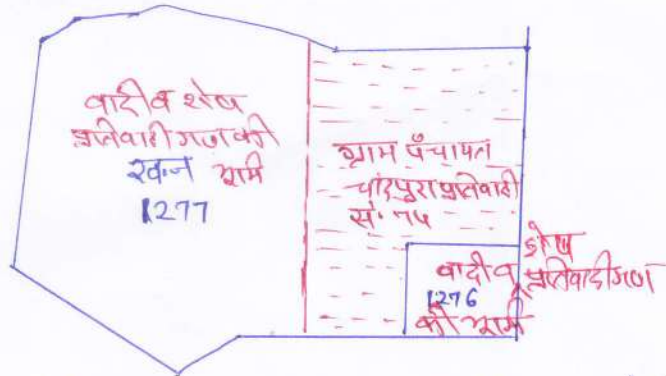 वादी व शेष
प्रतिवादी गण की
ख.न. भूमि
1277
ग्राम पंचायत
चांदपुरा प्रतिवादी
सं. 75
वादी व शेष प्रतिवादीगण
1276
की भूमि